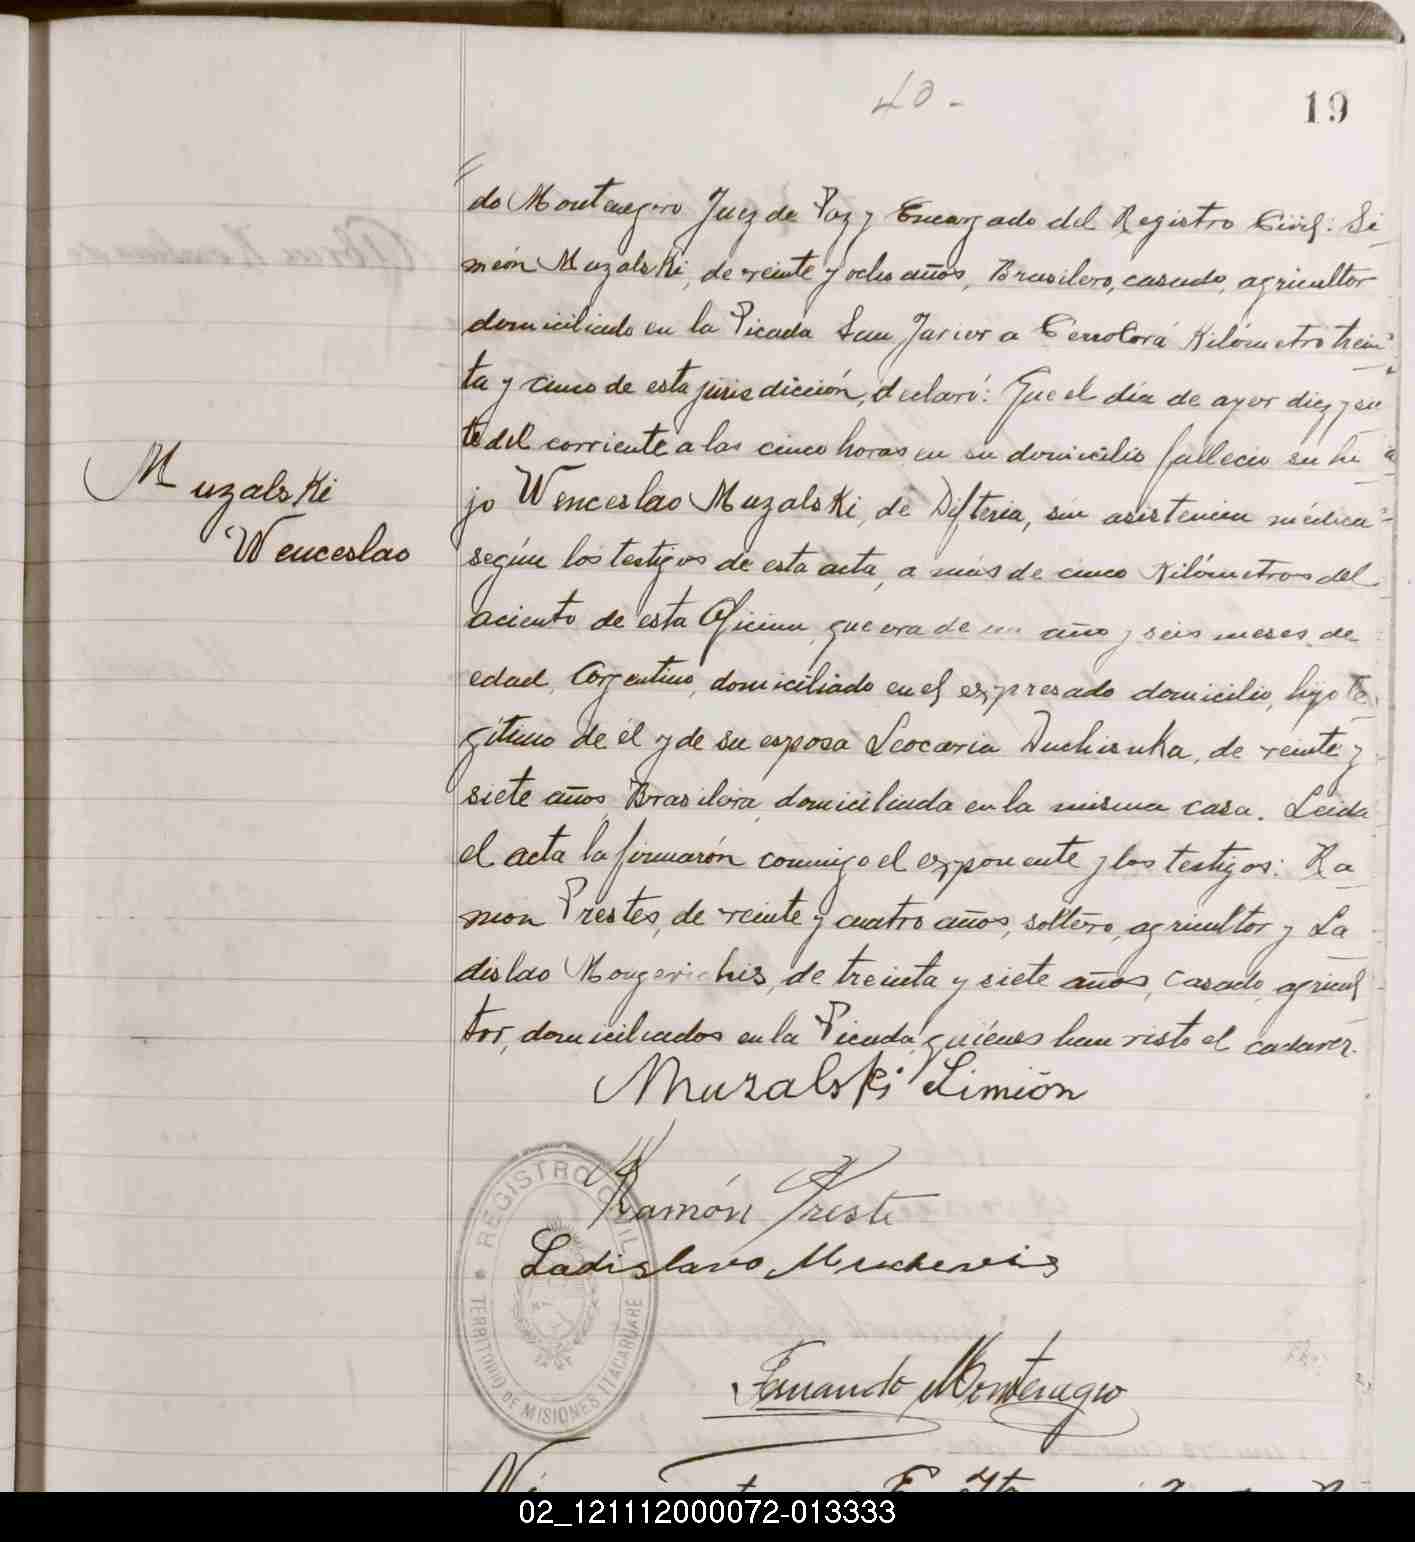 40-
19
do Montenegro Juez de Paz y Encargado del Registro Civil: Si
meón Muzalski, de veinte y ocho años, Brasilero, casado, agricultor
domiciliado en la Picada San Javier a CerroCorá Kilómetro trein
ta y cinco de esta jurisdicción, declaró: Que el día de ayer diez y sie
te del corriente a las cinco horas en su domicilio fallecio su hi
jo Wenceslao Muzalski, de Difteria, sin asistencia médica
según los testigos de esta acta, a más de cinco Kilómetros del
aciento de esta Oficina, que era de un año y seis meses de
edad, Argentino, domiciliado en el expresado domicilio, hijo le
gítimo de él y de su esposa Leocaria Duchiska, de veinte y
siete años, Brasilera, domiciliada en la misma casa. Leida
el acta la firmarón conmigo el exponente y los testigos: Ra
mon Prestes, de veinte y cuatro años, soltero, agricultor y La
dislao Mongerichis, de treinta y siete años, casado, agricul
tor, domiciliados en la Picada, quiénes han visto el cadaver.
Muzalski
Wenceslao
Muzalski Simión
Ramón Preste
Ladislavo
Fernando Montenegro
REGISTRO CIVIL
TERRITORIO DE MISIONES ITACARUARE
02_121112000072-013333